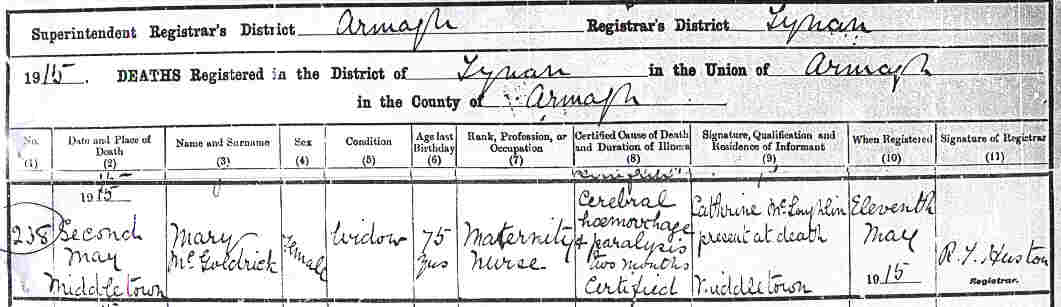 Superintendent Registrar's District Armagh Registrar's District Tynan
1915. DEATHS Registered in the District of Tynan in the Union of Armagh
in the County of Armagh
No. (1) Date and Place of Death (2) Name and Surname (3) Sex (4) Condition (5) Age last Birthday (6) Rank, Profession, or Occupation (7) Certified Cause of Death and Duration of Illness (8) Signature, Qualification and Residence of Informant (9) When Registered (10) Signature of Registrar (11)
238
1915
Second
May
Middletown
Mary
McGoldrick
Female
Widow
75
yrs
Maternity
Nurse
Cerebral
hæmorrhage
& paralysis
two months
Certified
Catherine McLaughlin
present at death
Middletown
Eleventh
May
1915
R. T. Huston
Registrar.